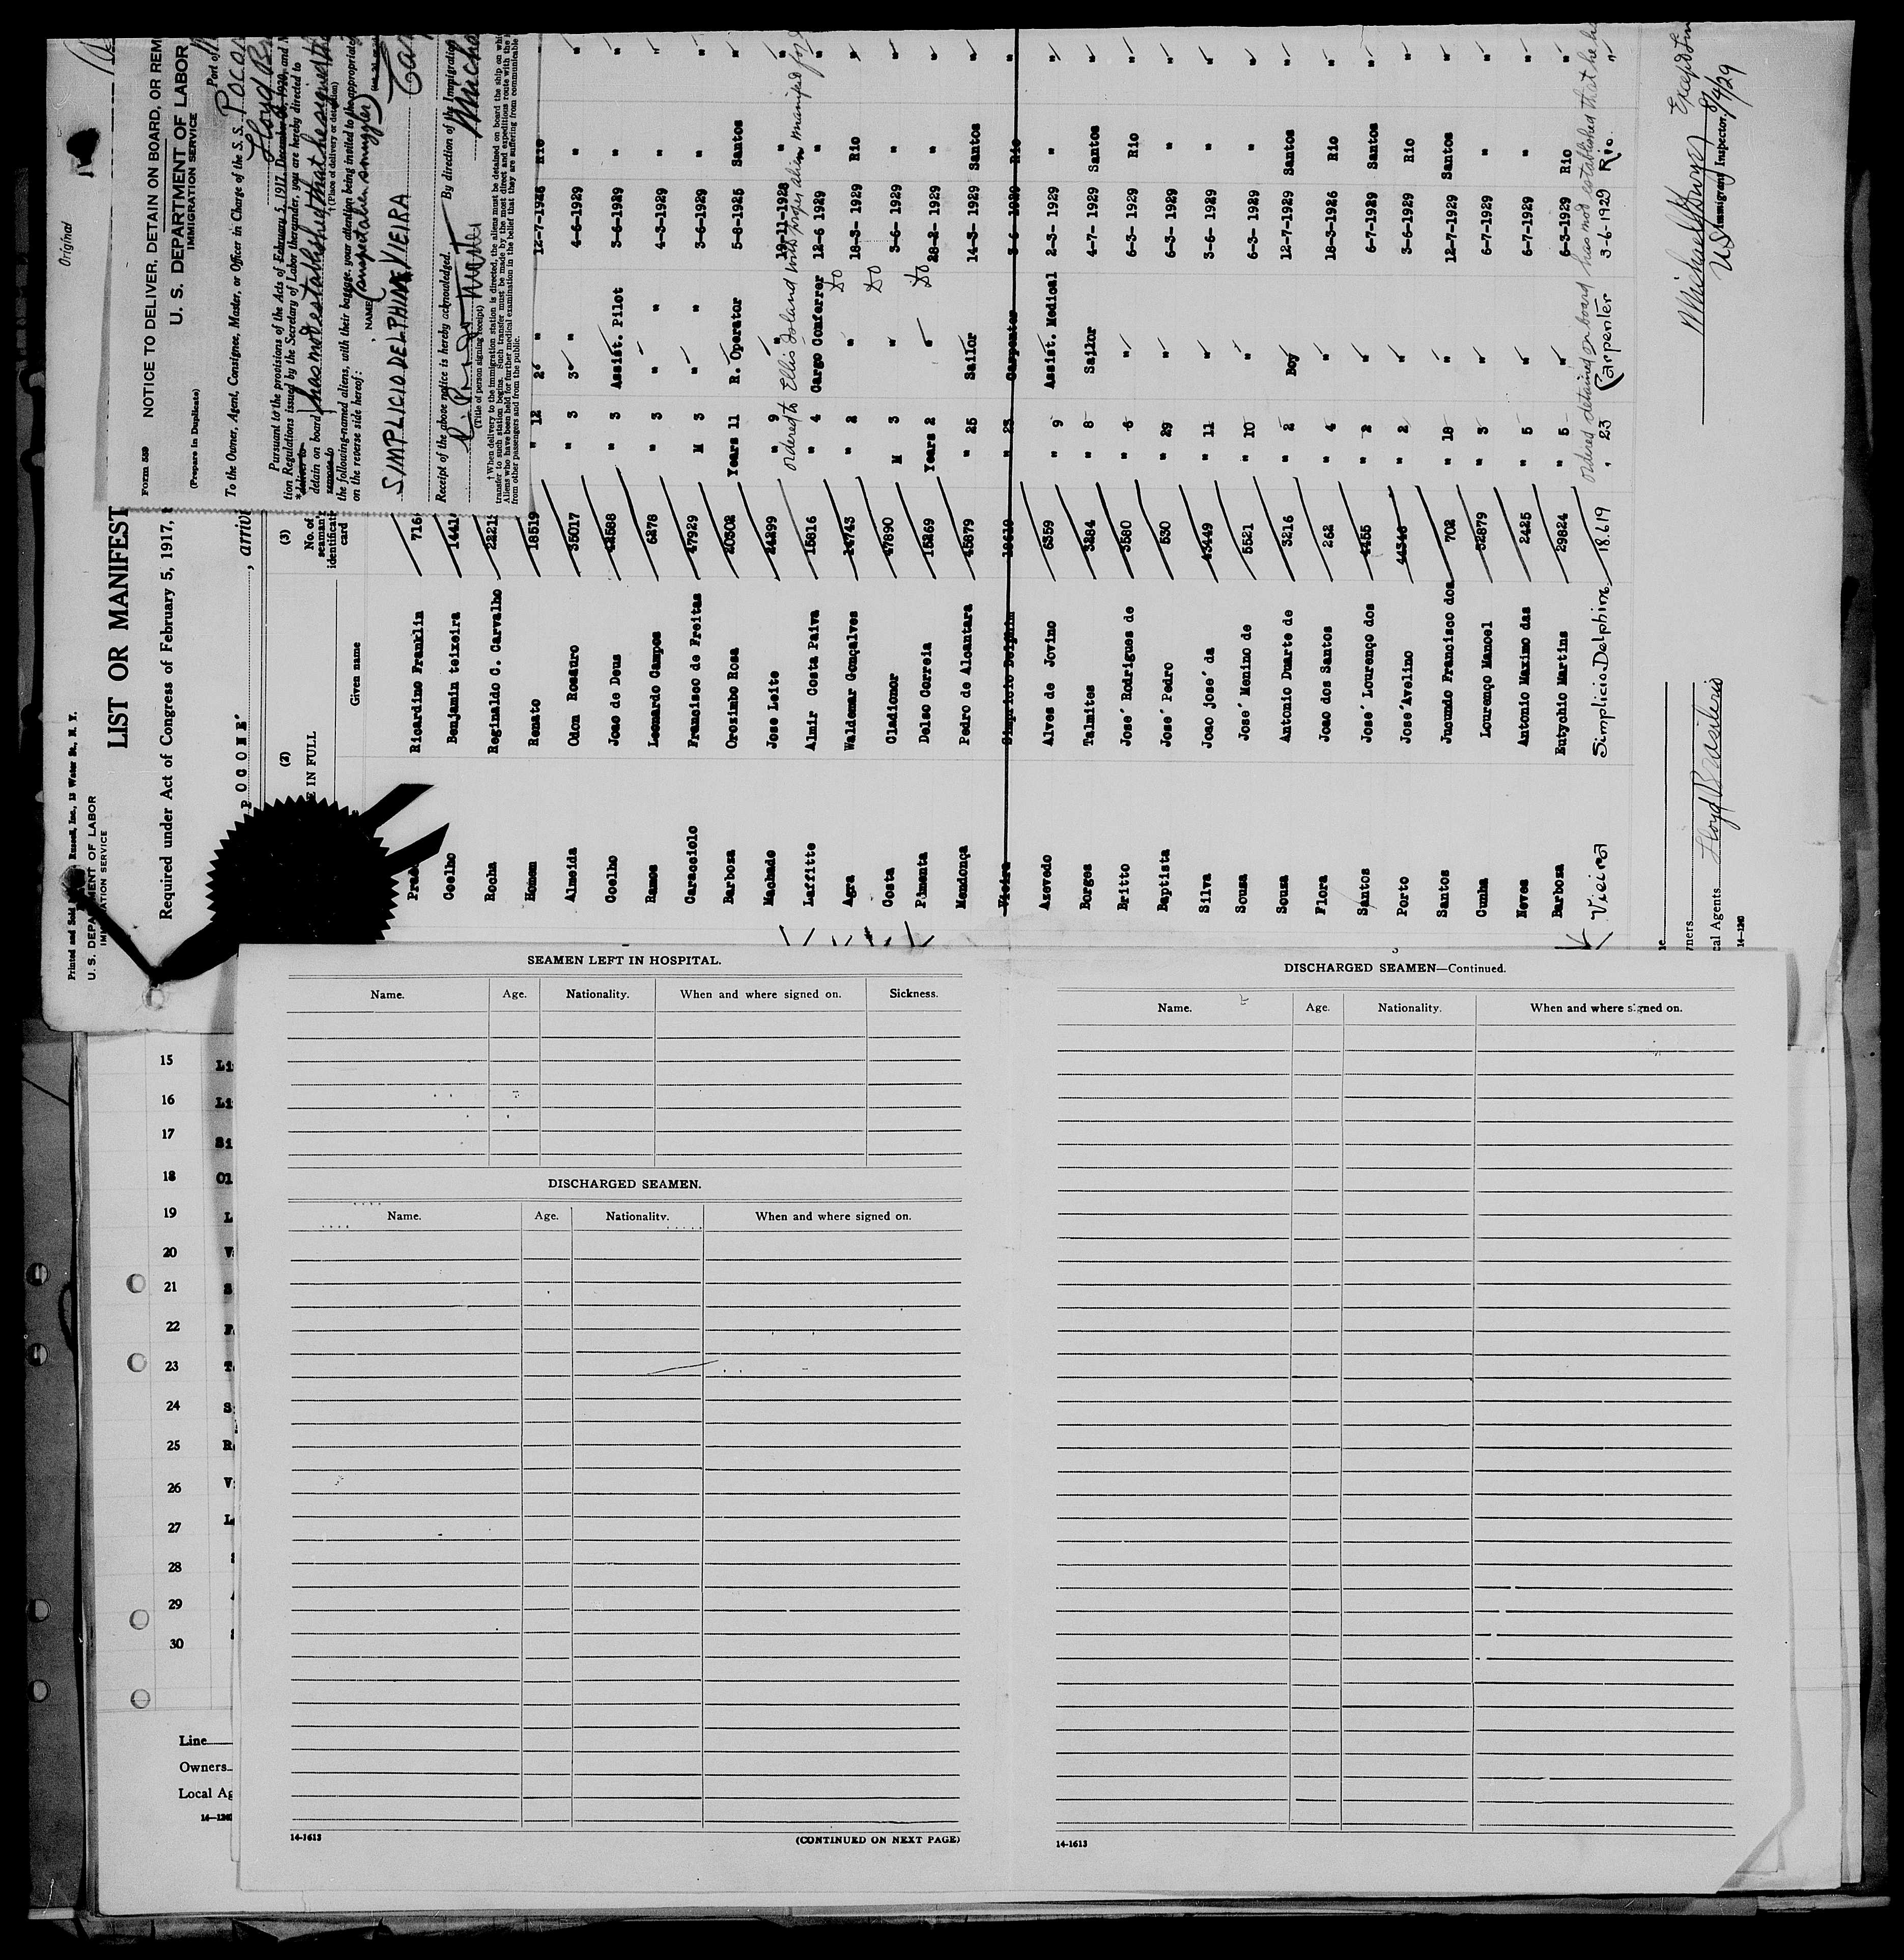 Original
Form 539 NOTICE TO DELIVER, DETAIN ON BOARD, OR REM
U. S. DEPARTMENT OF LABOR
IMMIGRATION SERVICE
(Prepare in Duplicate)
Port of
To the Owner, Agent, Consignee, Master, or Officer in Charge of the S. S.
Pursuant to the provisions of the Acts of February 5, 1917, December 26, 1920, and
tion Regulations issued by the Secretary of Labor thereunder, you are hereby directed to
*deliver to
detain on board has not established that he signed
remove to
†(Place of delivery or detention)
the following-named aliens, with their baggage, your attention being invited to the appropriate
on the reverse side hereof: (anapetalien smuggler)
NAME
SIMPLICIO DELPHINE VIEIRA
Receipt of the above notice is hereby acknowledged. By direction of the Immigration
(Title of person signing receipt)
††When delivery to the immigration station is directed, the aliens must be detained on board the ship on whi
transfer to such station begins. Such transfer must be made by the most direct and expeditious route with the
Aliens who have been held for further medical examination in the belief that they are suffering from communicable
from other passengers and from the public.
Printed and Sold Russell, Inc., 13 Water St., N. Y.
U. S. DEPARTMENT OF LABOR
IMMIGRATION SERVICE
LIST OR MANIFEST
Required under Act of Congress of February 5, 1917,
POCONE , arrivi
(2) (3)
E IN FULL No. of seaman's identificati card
Given name
Prado Ricardino Franklin 716
Coelho Benjamin teixeira 1441
Rocha Reginaldo C. Carvalho 2221
Homem Renato 18519 " 12 2º " 12-7-1926 Rio "
Almeida Odon Rosauro 35017 " 3 3º " 4-6-1929 " "
Coelho Joao de Deus 42588 " 3 Assist. Pilot 3-6-1929 " "
Ramos Leonardo Campos 6278 " 3 " " 4-3-1929 " "
Caracciolo Francisco de Freitas 47929 M 3 " " 3-6-1929 " "
Barbosa Orozimbo Rosa 20302 Years 11 R. Operator 5-8-1925 Santos "
Machado Jose Leite 24299 " 9 " " 19-11-1928 " "
ordered to Ellis Island with proper alien manifest for
Laffitte Almir Costa Paiva 15816 " 4 Cargo Conferrer 12-6 1929 " "
Agra Waldemar Gonçalves 14743 " 2 " Do 18-3- 1929 Rio "
Costa Cladionor 47890 M 3 " Do 3-6- 1929 " "
Pimenta Delso Correia 15269 Years 2 " Do 28-2- 1929 " "
Mendonça Pedro de Alcantara 45879 " 25 Sailor 14-3- 1929 Santos "
Vieira Simpricio Delphim 18619 " 23 Carpenter 3-6-1929 Rio "
Azevedo Alves de Jovino 6359 " 9 Assist. Medical 2-3- 1929 " "
Borges Talmites 3284 " 8 Sailor 4-7- 1929 Santos "
Britto Jose' Rodrigues de 3580 " 6 " 6-3- 1929 Rio "
Baptista Jose' Pedro 530 " 29 " 6-3- 1929 " "
Silva Joao jose' da 43449 " 11 " 3-6- 1929 " "
Sousa Jose' Menino de 5521 " 10 " 6-3- 1929 " "
Sousa Antonio Duarte de 3216 " 2 Boy 12-7-1929 Santos "
Flora Joao dos Santos 262 " 4 " 18-3-1926 Rio "
Santos Jose' Lourenço dos 4455 " 2 " 6-7-1929 Santos "
Porto Jose'Avelino 44346 " 2 " 3-6-1929 Rio "
Santos Jucundo Francisco dos 702 " 18 " 12-7-1929 Santos "
Cunha Lourenço Manoel 32879 " 3 " 6-7-1929 " "
Neves Antonio Maximo das 2425 " 5 " 6-7-1929 " "
Barbosa Eutychio Martins 29824 " 5 " 6-3-1929 Rio "
ordered detained on board has not established that he
Vieira Simplicio Delphim 18.619 " 23 Carpenter 3-6-1929 Rio. "
ners
cal Agents Lloyd Brasileiro
14-1240
Immigrant Inspector.
8/4/29
15 Li
16 Li
17 Si
18 Ol
19 L
20 V
21 S
22
23 T
24 S
25 R
26 V
27 L
28
29
30
Line
Owners
Local Ag
SEAMEN LEFT IN HOSPITAL.
Name. Age. Nationality. When and where signed on. Sickness.
DISCHARGED SEAMEN.
Name. Age. Nationality. When and where signed on.
14-1613 (CONTINUED ON NEXT PAGE)
3
DISCHARGED SEAMEN—Continued.
Name. Age. Nationality. When and where signed on.
14-1613